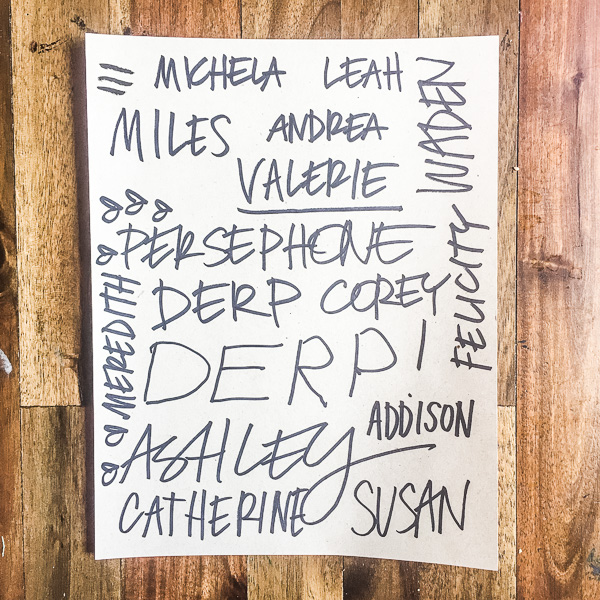 MICHELA LEAH
WADEN
MILES ANDREA
VALERIE
PERSEPHONE
FELICITY
DERP COREY
MEREDITH
DERP
ADDISON
ASHLEY
CATHERINE SUSAN